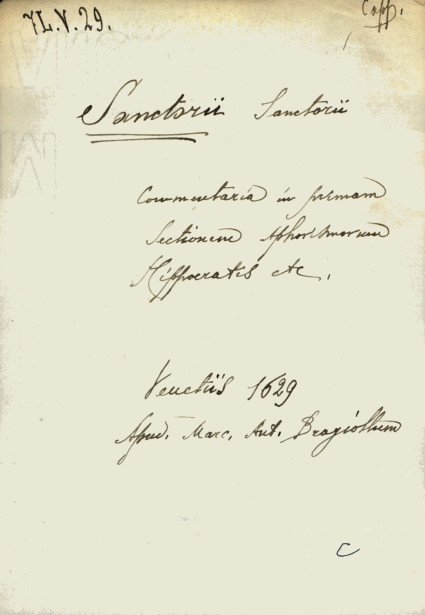 7L.V.29.
Copp.
Sanctorii Sanctorii
Commentaria in primam
Sectionem Aphorismorum
Hippocratis etc.
Venetiis 1629
Apud. Marc. Ant. Brogiollum
C